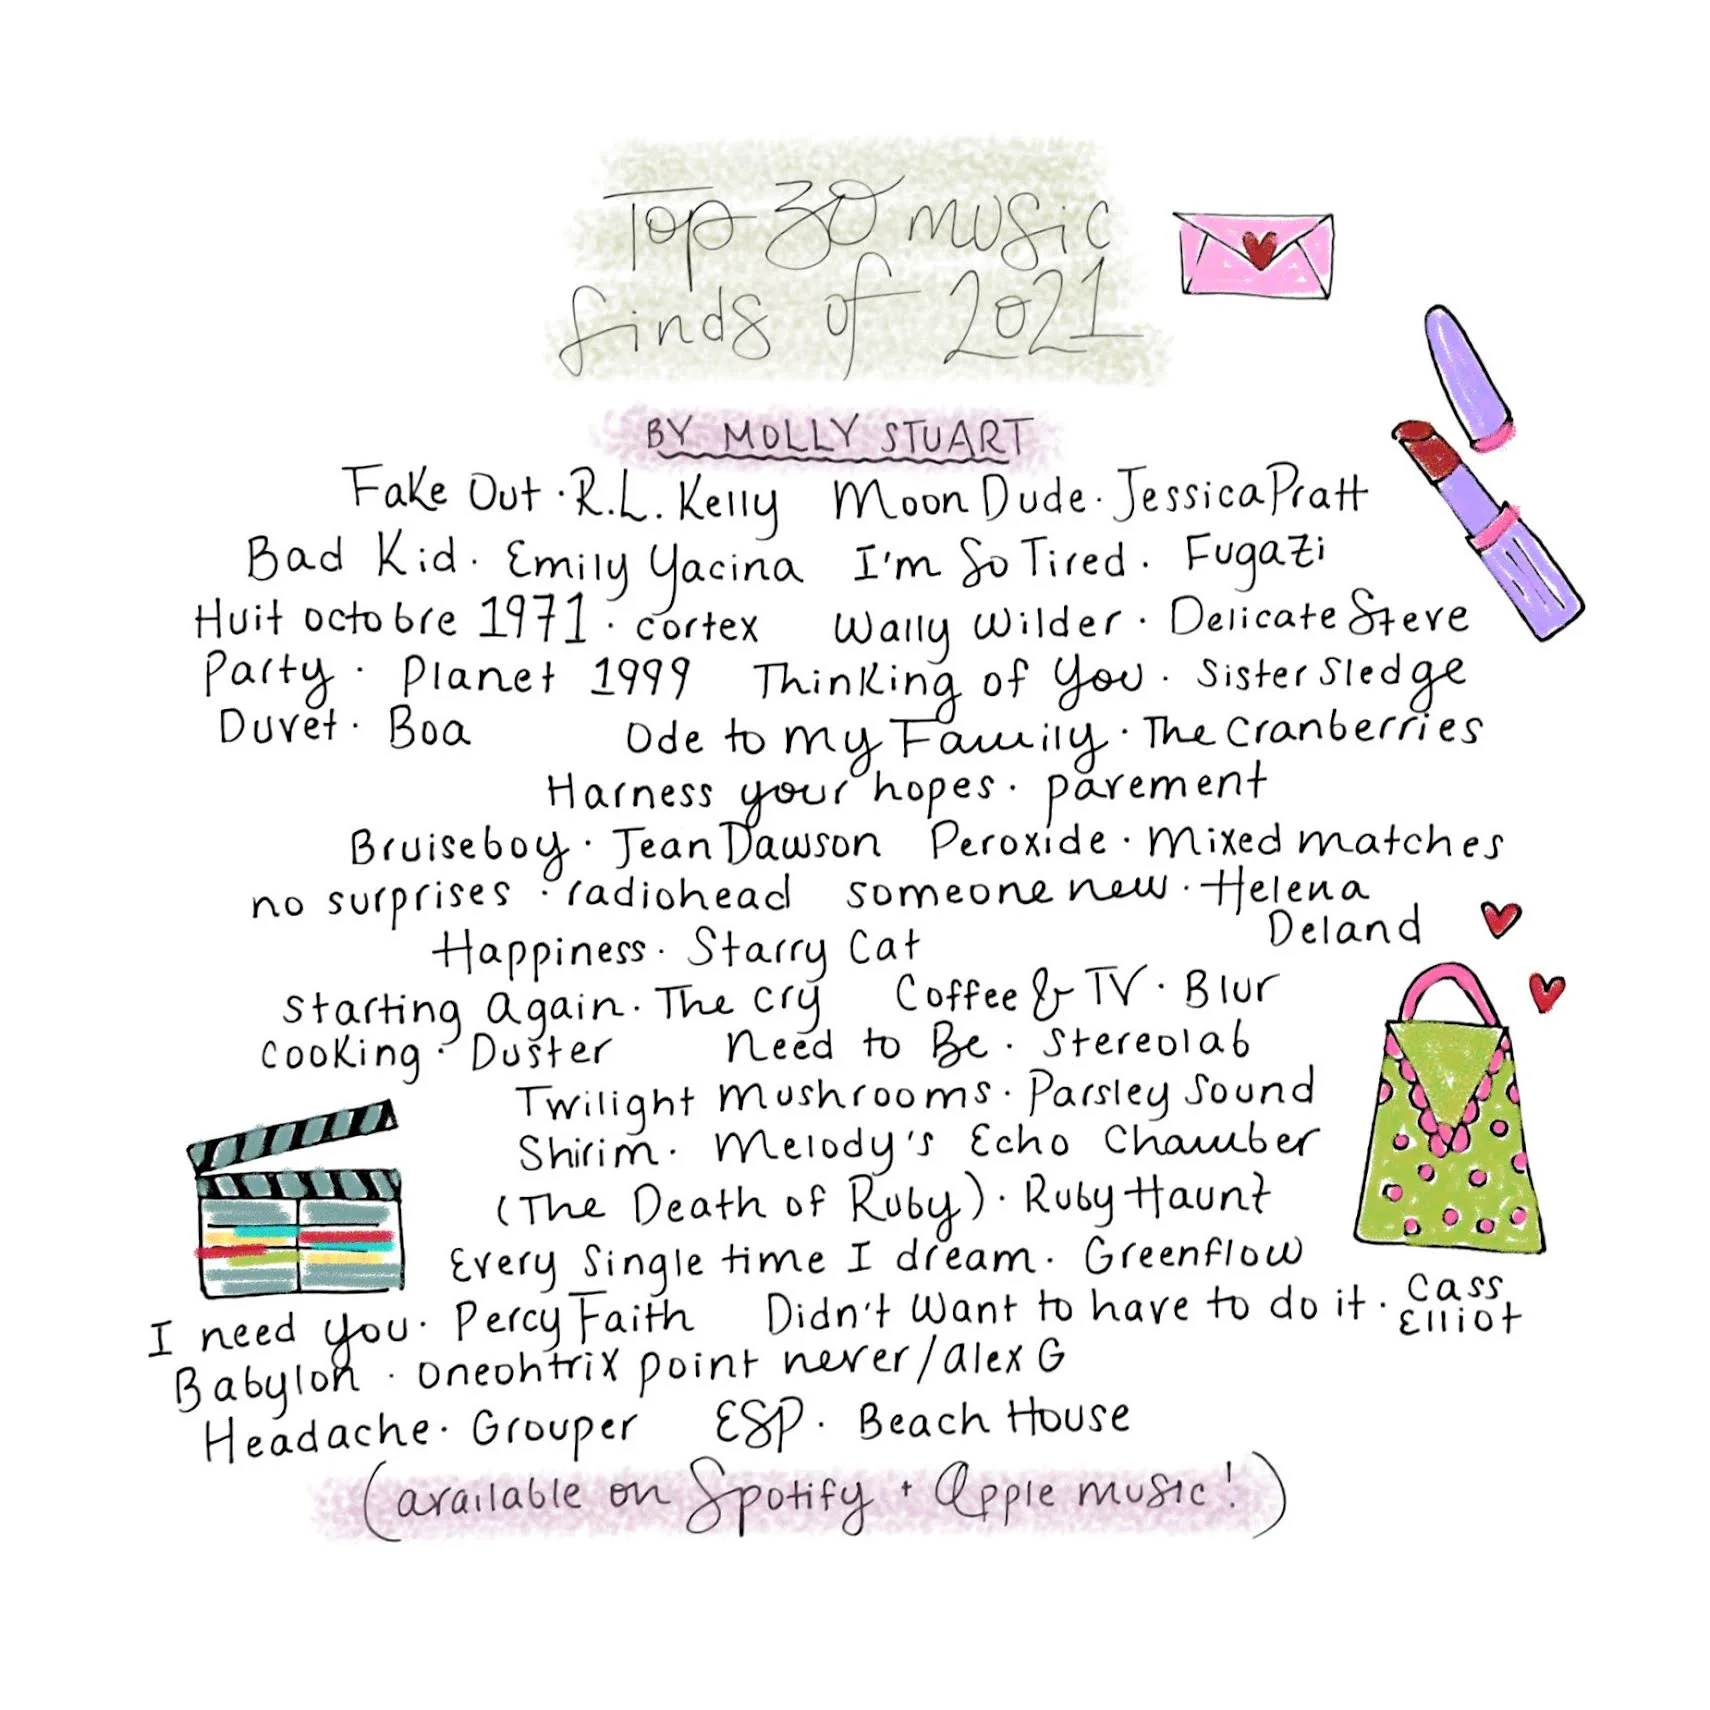 Top 30 music
finds of 2021
BY MOLLY STUART
Fake Out · R.L. Kelly Moon Dude · Jessica Pratt
Bad Kid · Emily Yacina I'm So Tired · Fugazi
Huit octobre 1971 · cortex Wally Wilder · Delicate Steve
Party · Planet 1999 Thinking of You · Sister Sledge
Duvet · Boa Ode to my Family · The Cranberries
Harness your hopes · pavement
Bruiseboy · Jean Dawson Peroxide · mixed matches
no surprises · radiohead someone new · Helena
Deland
Happiness · Starry Cat
Starting again · The cry Coffee & TV · Blur
cooking · Duster Need to Be · Stereolab
Twilight mushrooms · Parsley Sound
Shirim · Melody's Echo Chamber
(The Death of Ruby) · Ruby Haunt
Every Single time I dream · Greenflow
I need you · Percy Faith Didn't want to have to do it · Cass
Elliot
Babylon · oneohtrix point never/alex G
Headache · Grouper ESP · Beach House
(available on Spotify + Apple music!)